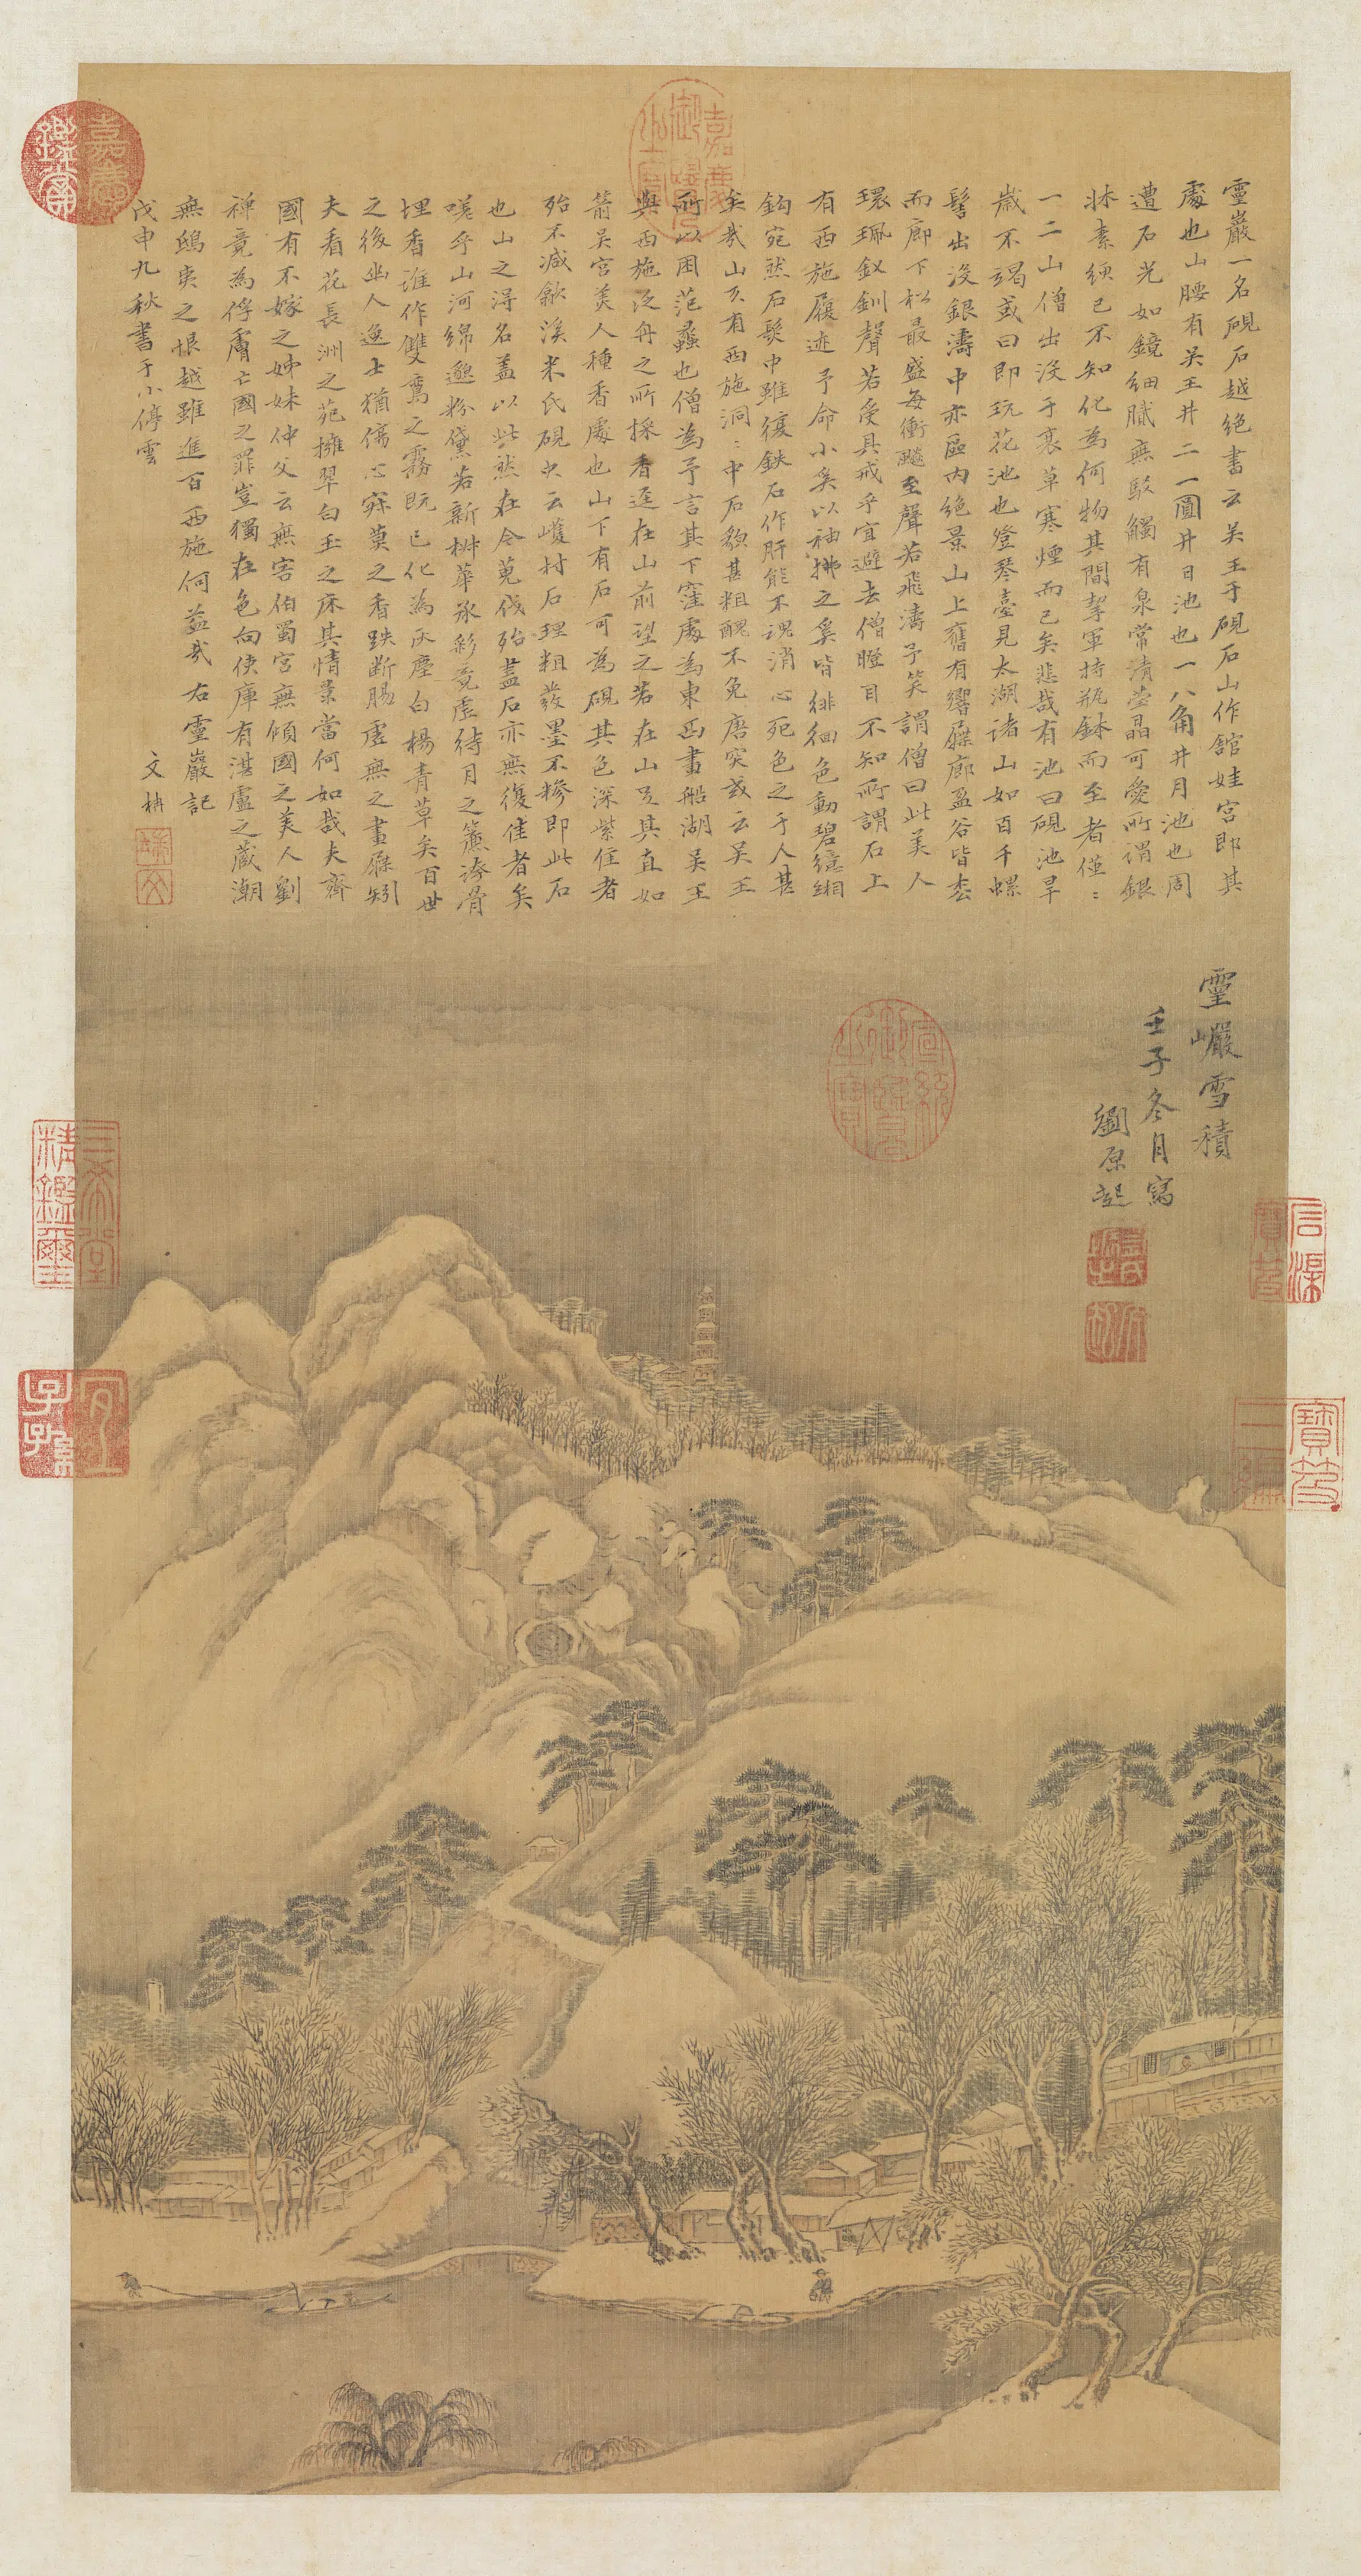 靈巖一名硯石越絕書云吳王于硯石山作舘娃宮即其
處也山腰有吳王井二一圓井日池也一八角井月池也周
遭石光如鏡細膩無駁觸有泉常清瑩晶可愛所謂銀
牀素綆已不知化為何物其間挈軍持瓶鉢而至者僅〻
一二山僧出沒于衰草寒煙而已矣悲哉有池曰硯池旱
歲不竭或曰即玩花池也登琴臺見太湖諸山如百千螺
髻出沒銀濤中亦區内絕景山上舊有響屧廊盈谷皆松
而廊下松最盛每衝飈至聲若飛濤予笑謂僧曰此美人
環珮釵釧聲若受具戒乎宜避去僧瞪目不知所謂石上
有西施履迹予命小奚以袖拂之奚皆徘徊色動碧繶緗
鈎宛然石髮中雖復鉄石作肝能不魂消心死色之于人甚
矣哉山仄有西施洞〻中石貌甚粗醜不免唐突或云吳王
所以囚范蠡也僧為予言其下窪處為東西畫船湖吳王
與西施泛舟之所採香逕在山前望之若在山足其直如
箭吳宮美人種香處也山下有石可為硯其色深紫佳者
殆不減歙溪米氏硯史云㠖村石理粗發墨不糝即此石
也山之得名蓋以此然在今蒐伐殆盡石亦無復佳者矣
嗟乎山河綿邈粉黛若新椒華沉彩竟虛待月之簾誇骨
埋香誰作雙鸞之霧既已化為灰塵白楊青草矣百世
之後幽人逸士猶傷心寂寞之香趺斷腸虛無之畫屧矧
夫看花長洲之苑擁翠白玉之床其情景當何如哉夫齊
國有不嫁之姊妹仲父云無害伯蜀宮無傾國之美人劉
禪竟為俘虜亡國之罪豈獨在色向使庫有湛盧之藏潮
無鴟夷之恨越雖進百西施何益哉 右靈巖記
戊申九秋書于小停雲 文柟
靈巖雪積
壬子冬月寫
劉原起
嘉慶御覽之寶
嘉慶鑒賞
宣統御覽之寶
三希堂精鑑璽
宜子孫
石渠寶笈
寶笈三編